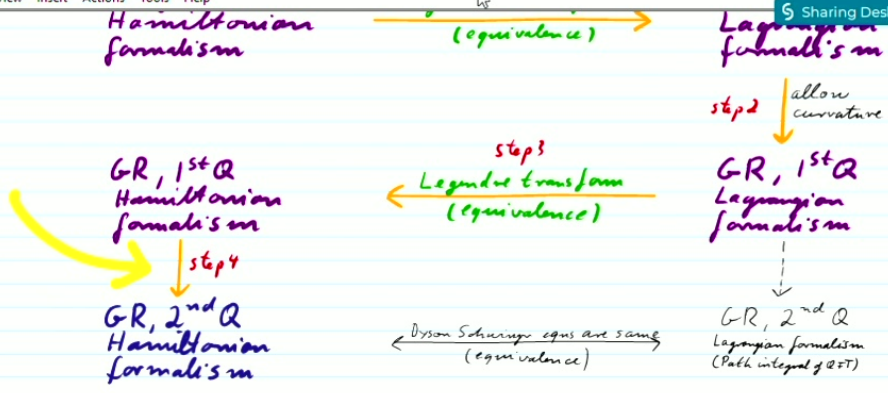 Sharing Des
Hamiltonian
formalism
(equivalence)
Lagrangian
formalism
step 2
allow
curvature
GR, 1st Q
Hamiltonian
formalism
step 3
Legendre transform
(equivalence)
GR, 1st Q
Lagrangian
formalism
step 4
GR, 2nd Q
Hamiltonian
formalism
Dyson Schwinger eqns are same
(equivalence)
GR, 2nd Q
Lagrangian formalism
(Path integral of QFT)